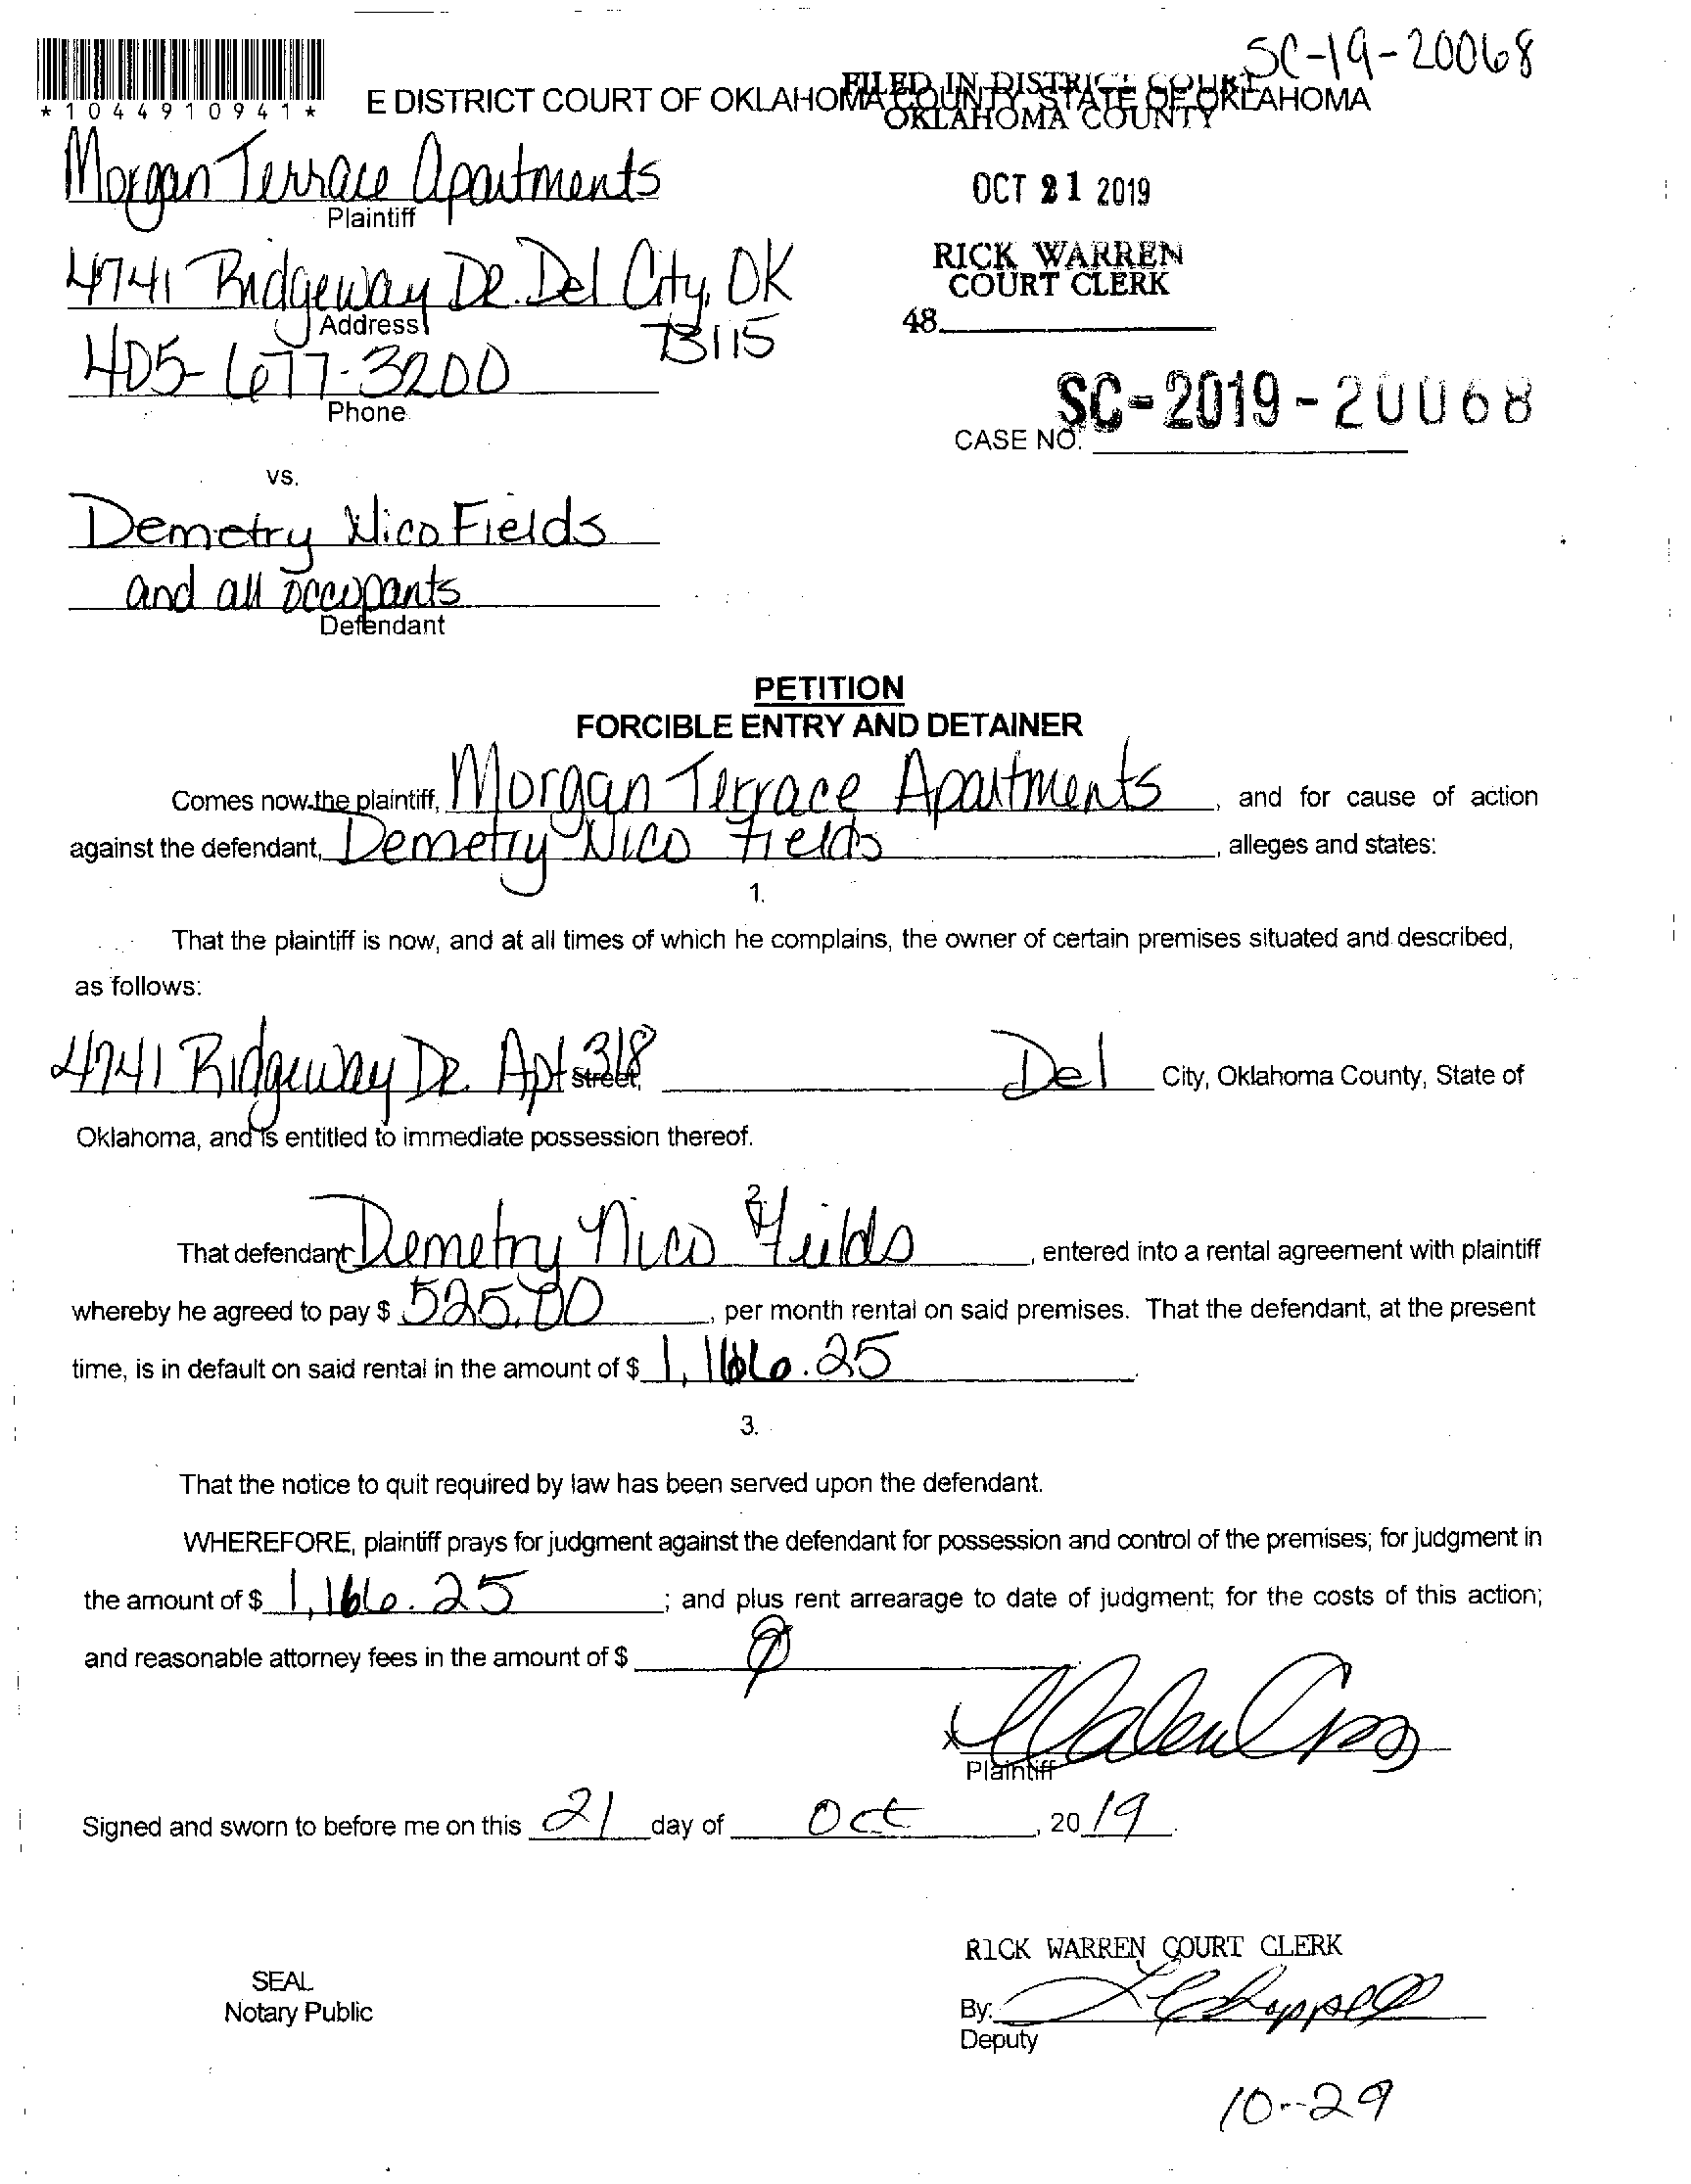 SC-19-20068
*1044910941*
E DISTRICT COURT OF OKLAHOMA COUNTY, STATE OF OKLAHOMA
FILED IN DISTRICT COURT
OKLAHOMA COUNTY
Morgan Terrace Apartments
Plaintiff
OCT 21 2019
4741 Ridgeway DR. Del City, OK
73115
Address
RICK WARREN
COURT CLERK
48
405-677-3200
Phone
SC-2019-20068
CASE NO.
vs.
Demetry Nico Fields
and all occupants
Defendant
PETITION
FORCIBLE ENTRY AND DETAINER
Comes now the plaintiff, Morgan Terrace Apartments, and for cause of action
against the defendant, Demetry Nico Fields, alleges and states:
1.
That the plaintiff is now, and at all times of which he complains, the owner of certain premises situated and described,
as follows:
4741 Ridgeway DR. Apt 318 Street, Del City, Oklahoma County, State of
Oklahoma, and is entitled to immediate possession thereof.
2.
That defendant Demetry Nico Fields, entered into a rental agreement with plaintiff
whereby he agreed to pay $ 525.00, per month rental on said premises. That the defendant, at the present
time, is in default on said rental in the amount of $ 1,166.25.
3.
That the notice to quit required by law has been served upon the defendant.
WHEREFORE, plaintiff prays for judgment against the defendant for possession and control of the premises; for judgment in
the amount of $ 1,166.25; and plus rent arrearage to date of judgment; for the costs of this action;
and reasonable attorney fees in the amount of $
x
Plaintiff
Signed and sworn to before me on this 21 day of Oct, 2019.
RICK WARREN COURT CLERK
SEAL
Notary Public
By:
Deputy
10-29